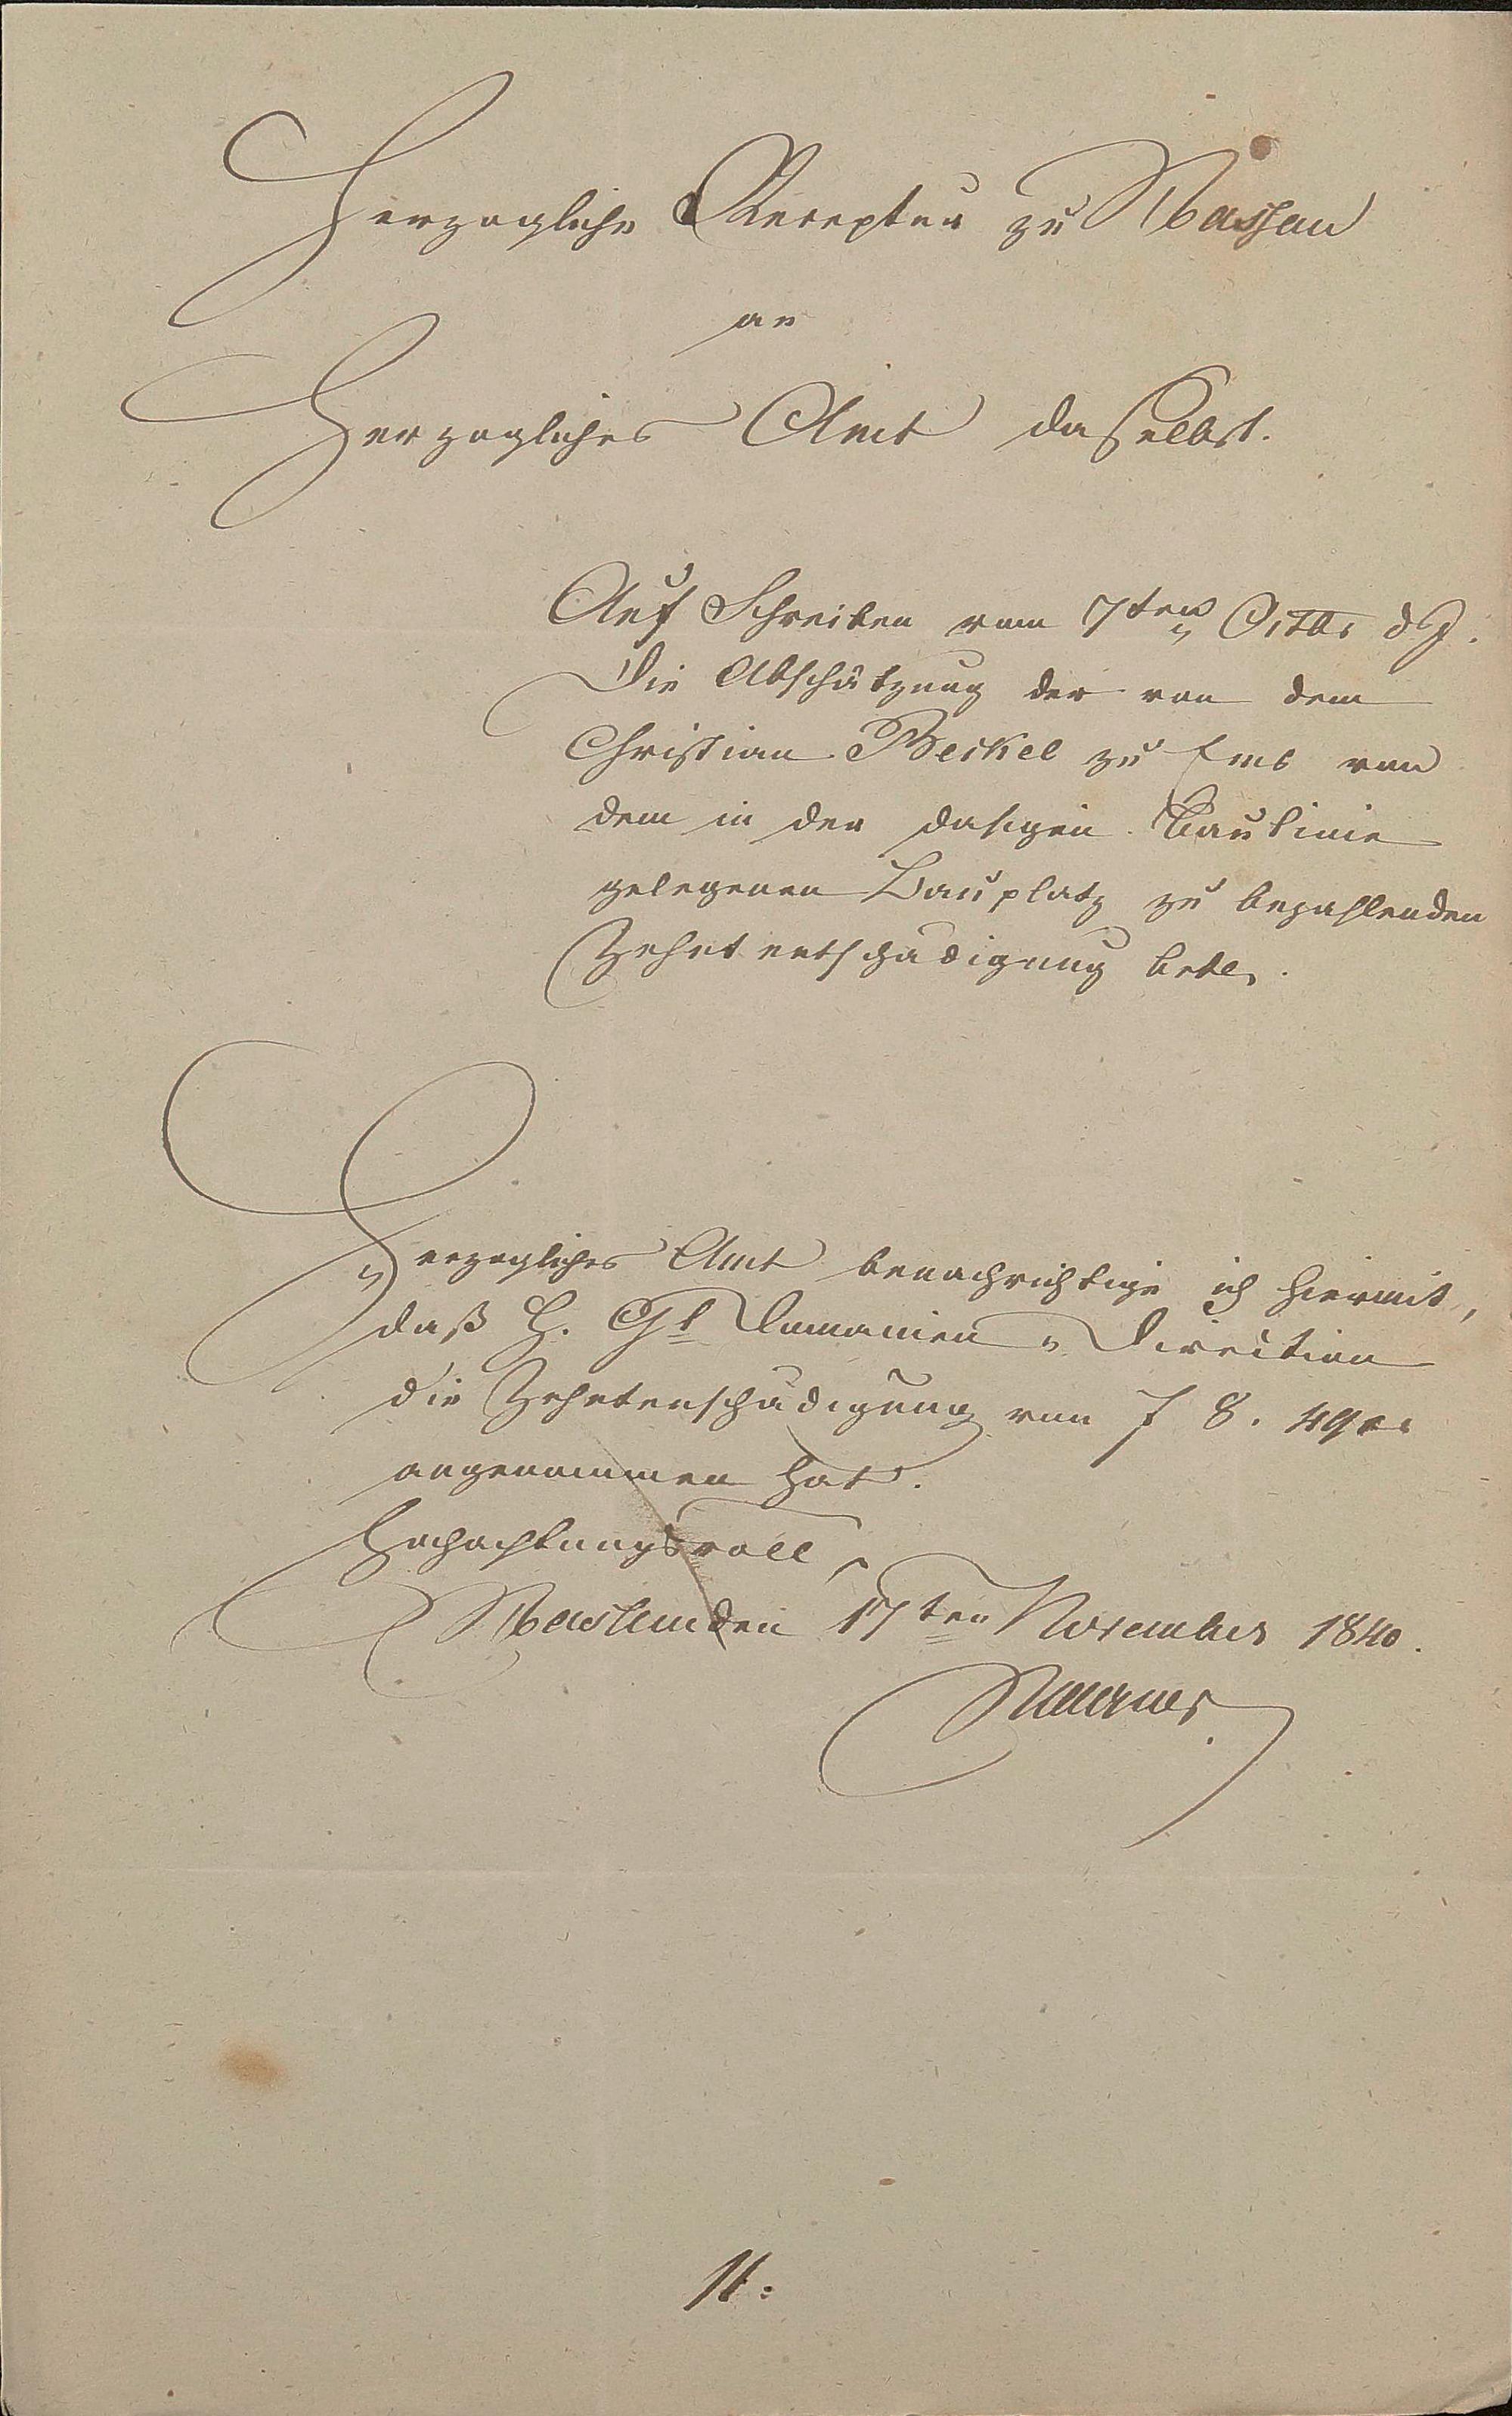 Herzogliche Receptur zu Nassau
an
Herzogliches Amt daselbst.
Auf Schreiben vom 7ten Octbr d J.
Die Abschätzung der von dem
Christian Beckel zu Ems von
dem in der dasigen Baulinie
gelegenen Bauplatz zu bezahlenden
Zehntentschädigung betr.
Herzogliches Amt benachrichtige ich hiermit,
daß H. Gl Domainen Direction
die Zehntenschädigung von f 8. 49 xr
angenommen hat.
Hochachtungsvoll
Nassau den 17ten November 1840.